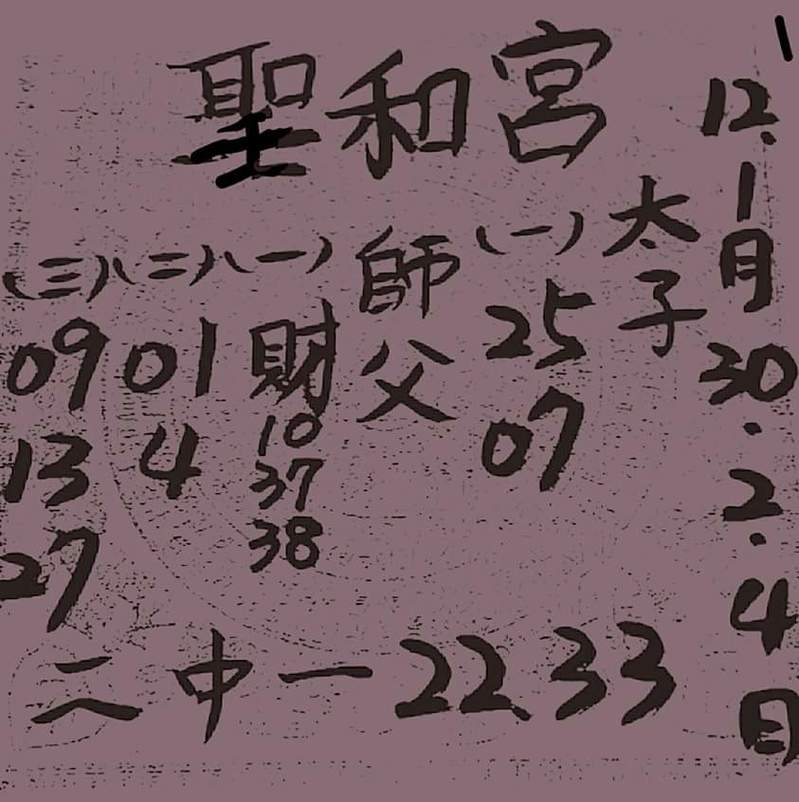 聖和宮
12.1月30.2.4日
太子
(一)
25
07
師父
(一)
財
10
37
38
(二)
01
4
(三)
09
13
27
二中一2233